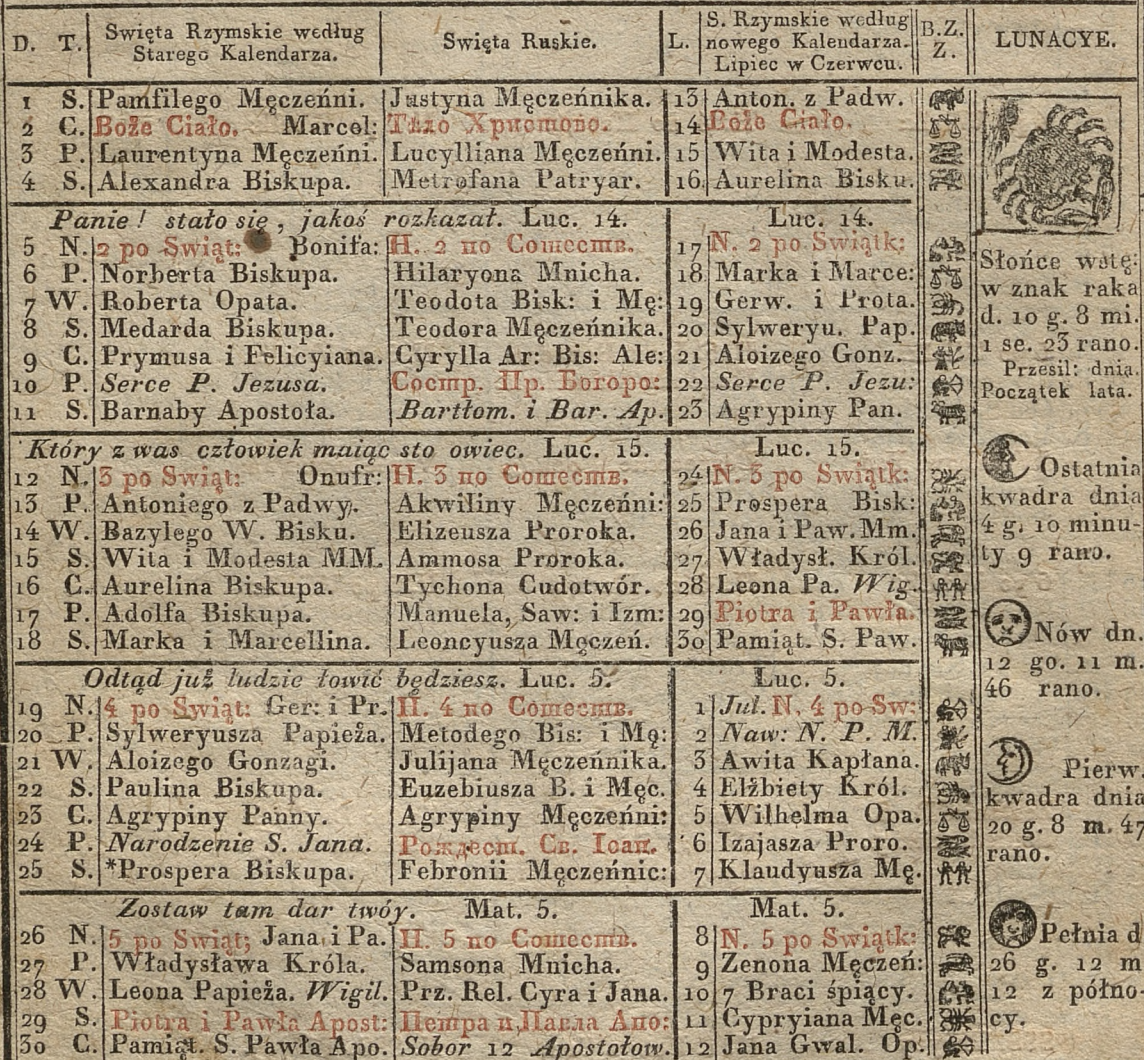 D. T. Swięta Rzymskie według Starego Kalendarza. Swięta Ruskie. L. S. Rzymskie według nowego Kalendarza. Lipiec w Czerwcu. B.Z. Z. LUNACYE.
1 S. Pamfilego Męczeńni. Justyna Męczeńnika. 13 Anton. z Padw.
2 C. Boże Ciało. Marcel: Тѣло Христово. 14 Boże Ciało.
3 P. Laurentyna Męczeńni. Lucylliana Męczeńni. 15 Wita i Modesta.
4 S. Alexandra Biskupa. Metrofana Patryar. 16 Aurelina Bisku.
Panie! stało się, jakoś rozkazał. Luc. 14. Luc. 14.
5 N. 2 po Swiąt: Bonifa: Н. 2 по Сошеств. 17 N. 2 po Swiątk:
6 P. Norberta Biskupa. Hilaryona Mnicha. 18 Marka i Marce:
7 W. Roberta Opata. Teodota Bisk: i Mę: 19 Gerw. i Prota.
8 S. Medarda Biskupa. Teodora Męczeńnika. 20 Sylweryu. Pap.
9 C. Prymusa i Felicyiana. Cyrylla Ar: Bis: Ale: 21 Aloizego Gonz.
10 P. Serce P. Jezusa. Состр. Пр. Богоро: 22 Serce P. Jezu:
11 S. Barnaby Apostoła. Bartłom. i Bar. Ap. 23 Agrypiny Pan.
Który z was człowiek maiąc sto owiec. Luc. 15. Luc. 15.
12 N. 3 po Swiąt: Onufr: Н. 3 по Сошеств. 24 N. 3 po Swiątk:
13 P. Antoniego z Padwy. Akwiliny Męczeńni: 25 Prospera Bisk:
14 W. Bazylego W. Bisku. Elizeusza Proroka. 26 Jana i Paw. Mm.
15 S. Wita i Modesta MM. Ammosa Proroka. 27 Władysł. Król.
16 C. Aurelina Biskupa. Tychona Cudotwór. 28 Leona Pa. Wig.
17 P. Adolfa Biskupa. Manuela, Saw: i Izm: 29 Piotra i Pawła.
18 S. Marka i Marcellina. Leoncyusza Męczeń. 30 Pamiąt. S. Paw.
Odtąd już ludzie łowić będziesz. Luc. 5. Luc. 5.
19 N. 4 po Swiąt: Ger: i Pr. Н. 4 по Сошеств. 1 Jul. N. 4 po Sw:
20 P. Sylweryusza Papieża. Metodego Bis: i Mę: 2 Naw: N. P. M.
21 W. Aloizego Gonzagi. Julijana Męczeńnika. 3 Awita Kapłana.
22 S. Paulina Biskupa. Euzebiusza B. i Męc. 4 Elżbiety Król.
23 C. Agrypiny Panny. Agrypiny Męczeńni: 5 Wilhelma Opa.
24 P. Narodzenie S. Jana. Рождест. Св. Іоан. 6 Izajasza Proro.
25 S. *Prospera Biskupa. Febronii Męczeńnic: 7 Klaudyusza Mę.
Zostaw tam dar twóy. Mat. 5. Mat. 5.
26 N. 5 po Swiąt; Jana i Pa. Н. 5 по Сошеств. 8 N. 5 po Swiątk:
27 P. Władysława Króla. Samsona Mnicha. 9 Zenona Męczeń:
28 W. Leona Papieża. Wigil. Prz. Rel. Cyra i Jana. 10 7 Braci śpiący.
29 S. Piotra i Pawła Apost: Петра и Павла Апо: 11 Cypryiana Męc.
30 C. Pamiąt. S. Pawła Apo. Sobor 12 Apostołow. 12 Jana Gwal. Op.
Słońce wstę:
w znak raka
d. 10 g. 8 mi.
1 se. 23 rano.
Przesil: dnia.
Początek lata.
Ostatnia
kwadra dnia
4 g. 10 minu-
ty 9 rano.
Nów dn.
12 go. 11 m.
46 rano.
Pierw.
kwadra dnia
20 g. 8 m. 47
rano.
Pełnia d
26 g. 12 m
12 z półno-
cy.